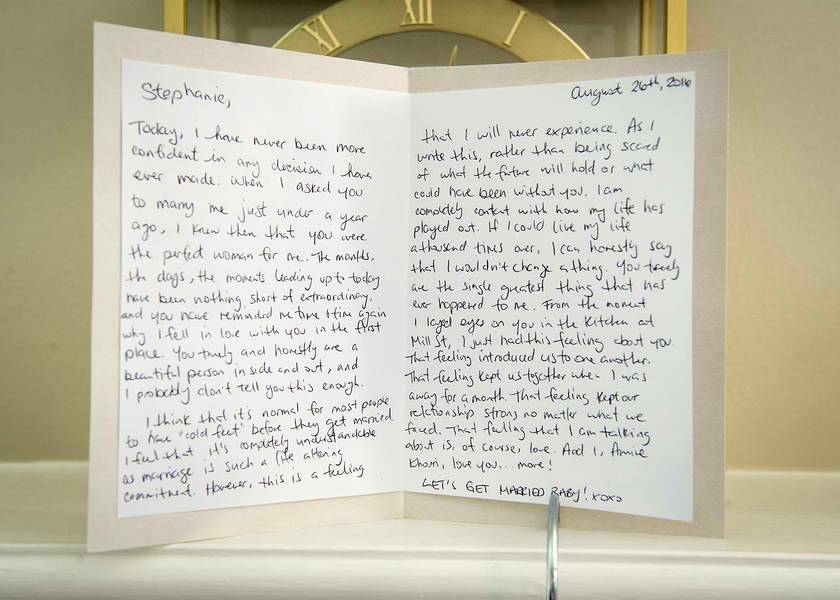 XI XII I
Stephanie,
Today, I have never been more
confident in any decision I have
ever made. When I asked you
to marry me just under a year
ago, I knew then that you were
the perfect woman for me. The months,
the days, the moments leading up to today
have been nothing short of extraordinary,
and you have reminded me time + time again
why I fell in love with you in the first
place. You truely and honestly are a
beautiful person inside and out, and
I probably don't tell you this enough.
I think that it's normal for most people
to have "cold feet" before they get married
I feel that it's completely understandable
as marriage is such a life altering
commitment. However, this is a feeling
August 26th, 2016
that I will never experience. As I
write this, rather than being scared
of what the future will hold or what
could have been without you, I am
completely content with how my life has
played out. If I could live my life
a thousand times over, I can honestly say
that I wouldn't change a thing. You truely
are the single greatest thing that has
ever happened to me. From the moment
I layed eyes on you in the Kitchen at
Mill St, I just had this feeling about you.
That feeling introduced us to one another.
That feeling kept us together when I was
away for a month. That feeling kept our
relationship strong no matter what we
faced. That feeling that I am talking
about is, of course, love. And I,
love you... more!
LET'S GET MARRIED BABY! xoxo